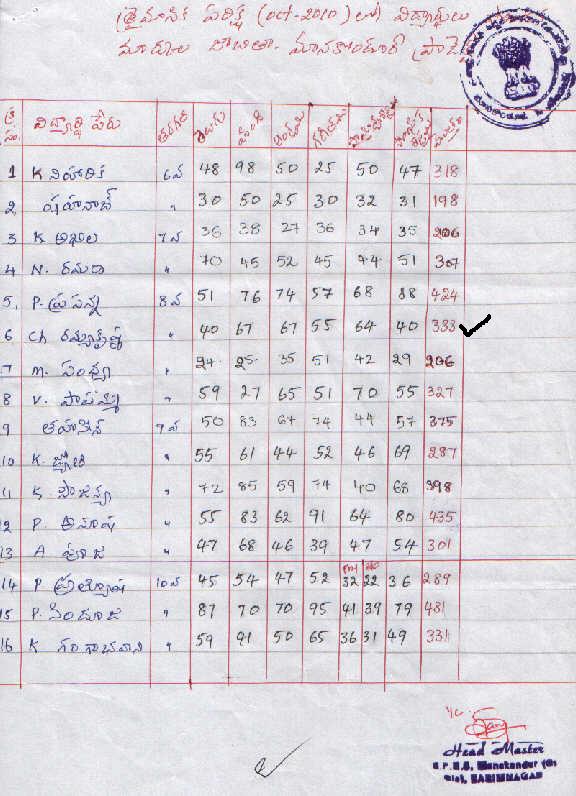 త్రైమాసిక పరీక్ష (oct-2010) లో విద్యార్థులు
మార్కుల జాబితా. మానకొండూర్
క్ర సం. విద్యార్థి పేరు తరగతి తెలుగు హిందీ ఇంగ్లీషు గణితము
1 K నిహారిక 6వ 48 98 50 25 50 47 318
2 షహనాజ్ " 30 50 25 30 32 31 198
3 K అఖిల 7వ 36 38 27 36 34 35 206
4 N. రమాదా " 70 45 52 45 44 51 307
5. P. ప్రసన్న 8వ 51 76 74 57 68 88 424
6 Ch " 40 67 67 55 64 40 333
7 M. సంధ్యా " 24 25 35 51 42 29 206
8 V. పాపమ్మ " 59 27 65 51 70 55 327
9 తహసీన్ 9వ 50 83 67 74 44 57 375
10 K. జ్యోతి " 55 61 44 52 46 69 287
11 K. సౌజన్య " 72 85 59 74 40 68 398
12 P. అనూష " 55 83 62 91 64 80 435
13 A పూజ " 47 68 46 39 47 54 301
14 P ప్రత్యూష 10వ 45 54 47 52 32 22 36 289
15 P. సింధూజ " 87 70 70 95 41 39 79 481
16 K గంగాభవాని " 59 91 50 65 36 31 49 331
Head Master
Manakondur
Dist. KARIMNAGAR